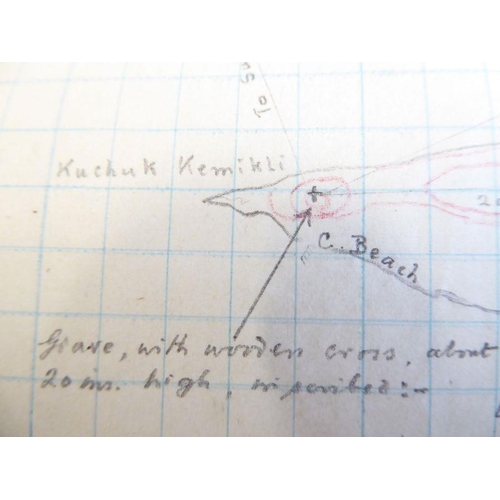 To Su
Kuchuk Kemikli
20
C. Beach
Grave, with wooden cross, about
20 ins. high, inscribed:-